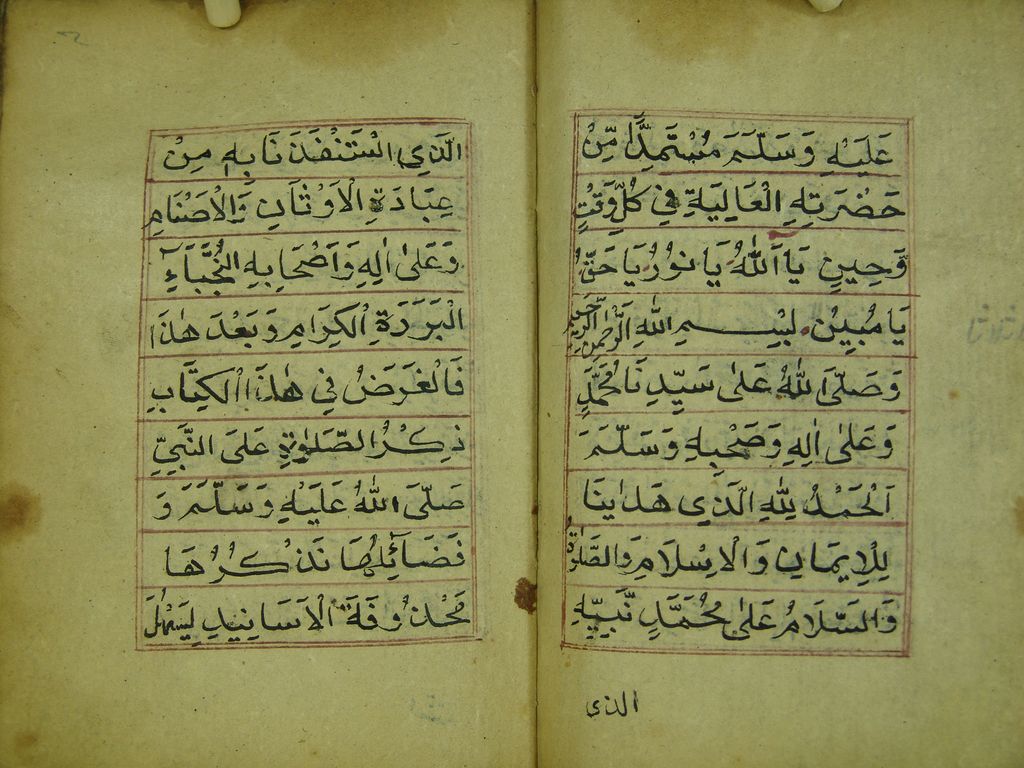 عَلَيْهِ وَسَلَّمَ مُسْتَمِدًّا مِّنْ
حَضْرَتِهِ الْعَالِيَةِ فِي كُلِّ وَقْتٍ
وَّحِينٍ يَا اَللّٰهُ يَا نُورُ يَا حَقُّ
يَا مُبِينُ بِسْمِ اللّٰهِ الرَّحْمٰنِ الرَّحِيْمِ
وَصَلَّى اللّٰهُ عَلٰى سَيِّدِنَا مُحَمَّدٍ
وَعَلٰى اٰلِهِ وَصَحْبِهِ وَسَلَّمَ
اَلْحَمْدُ لِلّٰهِ الَّذِي هَدٰينَا
لِلْاِيمَانِ وَالْاِسْلَامِ وَالصَّلٰوةُ
وَالسَّلَامُ عَلٰى مُحَمَّدٍ نَّبِيِّهِ
الذي
الَّذِي اسْتَنْقَذَنَا بِهِ مِنْ
عِبَادَةِ الْاَوْثَانِ وَالْاَصْنَامِ
وَعَلٰى اٰلِهِ وَاَصْحَابِهِ النُّجَبَآءِ
الْبَرَرَةِ الْكِرَامِ وَبَعْدَ هٰذَا
فَالْغَرَضُ فِي هٰذَا الْكِتَابِ
ذِكْرُ الصَّلٰوةِ عَلَى النَّبِيِّ
صَلَّى اللّٰهُ عَلَيْهِ وَسَلَّمَ وَ
فَضَآئِلُهَا نَذْكُرُهَا
مَحْذُوفَةَ الْاَسَانِيدِ لِيَسْهُلَ